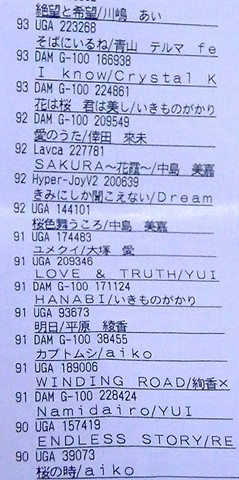 絶望と希望/川嶋 あい
93 UGA 223268
そばにいるね/青山 テルマ fe
93 DAM G-100 166938
I know/Crystal K
93 DAM G-100 224861
花は桜 君は美し/いきものがかり
92 DAM G-100 209549
愛のうた/倖田 來未
92 Lavca 227781
SAKURA~花霞~/中島 美嘉
92 Hyper-JoyV2 200639
きみにしか聞こえない/Dream
92 UGA 144101
桜色舞うころ/中島 美嘉
91 UGA 174463
ユメクイ/大塚 愛
91 UGA 209346
LOVE & TRUTH/YUI
91 DAM G-100 171124
HANABI/いきものがかり
91 UGA 93673
明日/平原 綾香
91 DAM G-100 38455
カブトムシ/aiko
91 UGA 189006
WINDING ROAD/絢香×
91 DAM G-100 228424
Namidairo/YUI
90 UGA 157419
ENDLESS STORY/RE
90 UGA 39073
桜の時/aiko